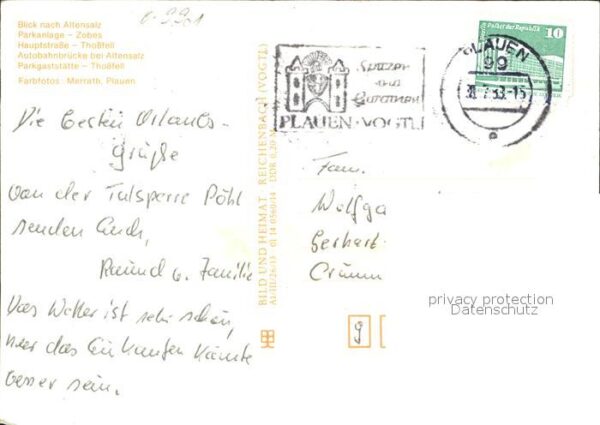 Blick nach Altensalz
Parkanlage – Zobes
Hauptstraße – Thoßfell
Autobahnbrücke bei Altensalz
Parkgaststätte – Thoßfell
Farbfotos: Merrath, Plauen
Die besten Urlaubs-
grüße
von der Talsperre Pöhl
senden Euch,
u. Familie
Das Wetter ist sehr schön,
nur das Einkaufen könnte
besser sein.
BILD UND HEIMAT REICHENBACH (VOGTL)
A1/III/26/13 01 14 0560/14 DDR 0,20 M
Spitzen
und
Gardinen
PLAUEN · VOGTL
PLAUEN
99
-15
e
Palast der Republik
10
Fam.
Gerhart
g
privacy protection
Datenschutz